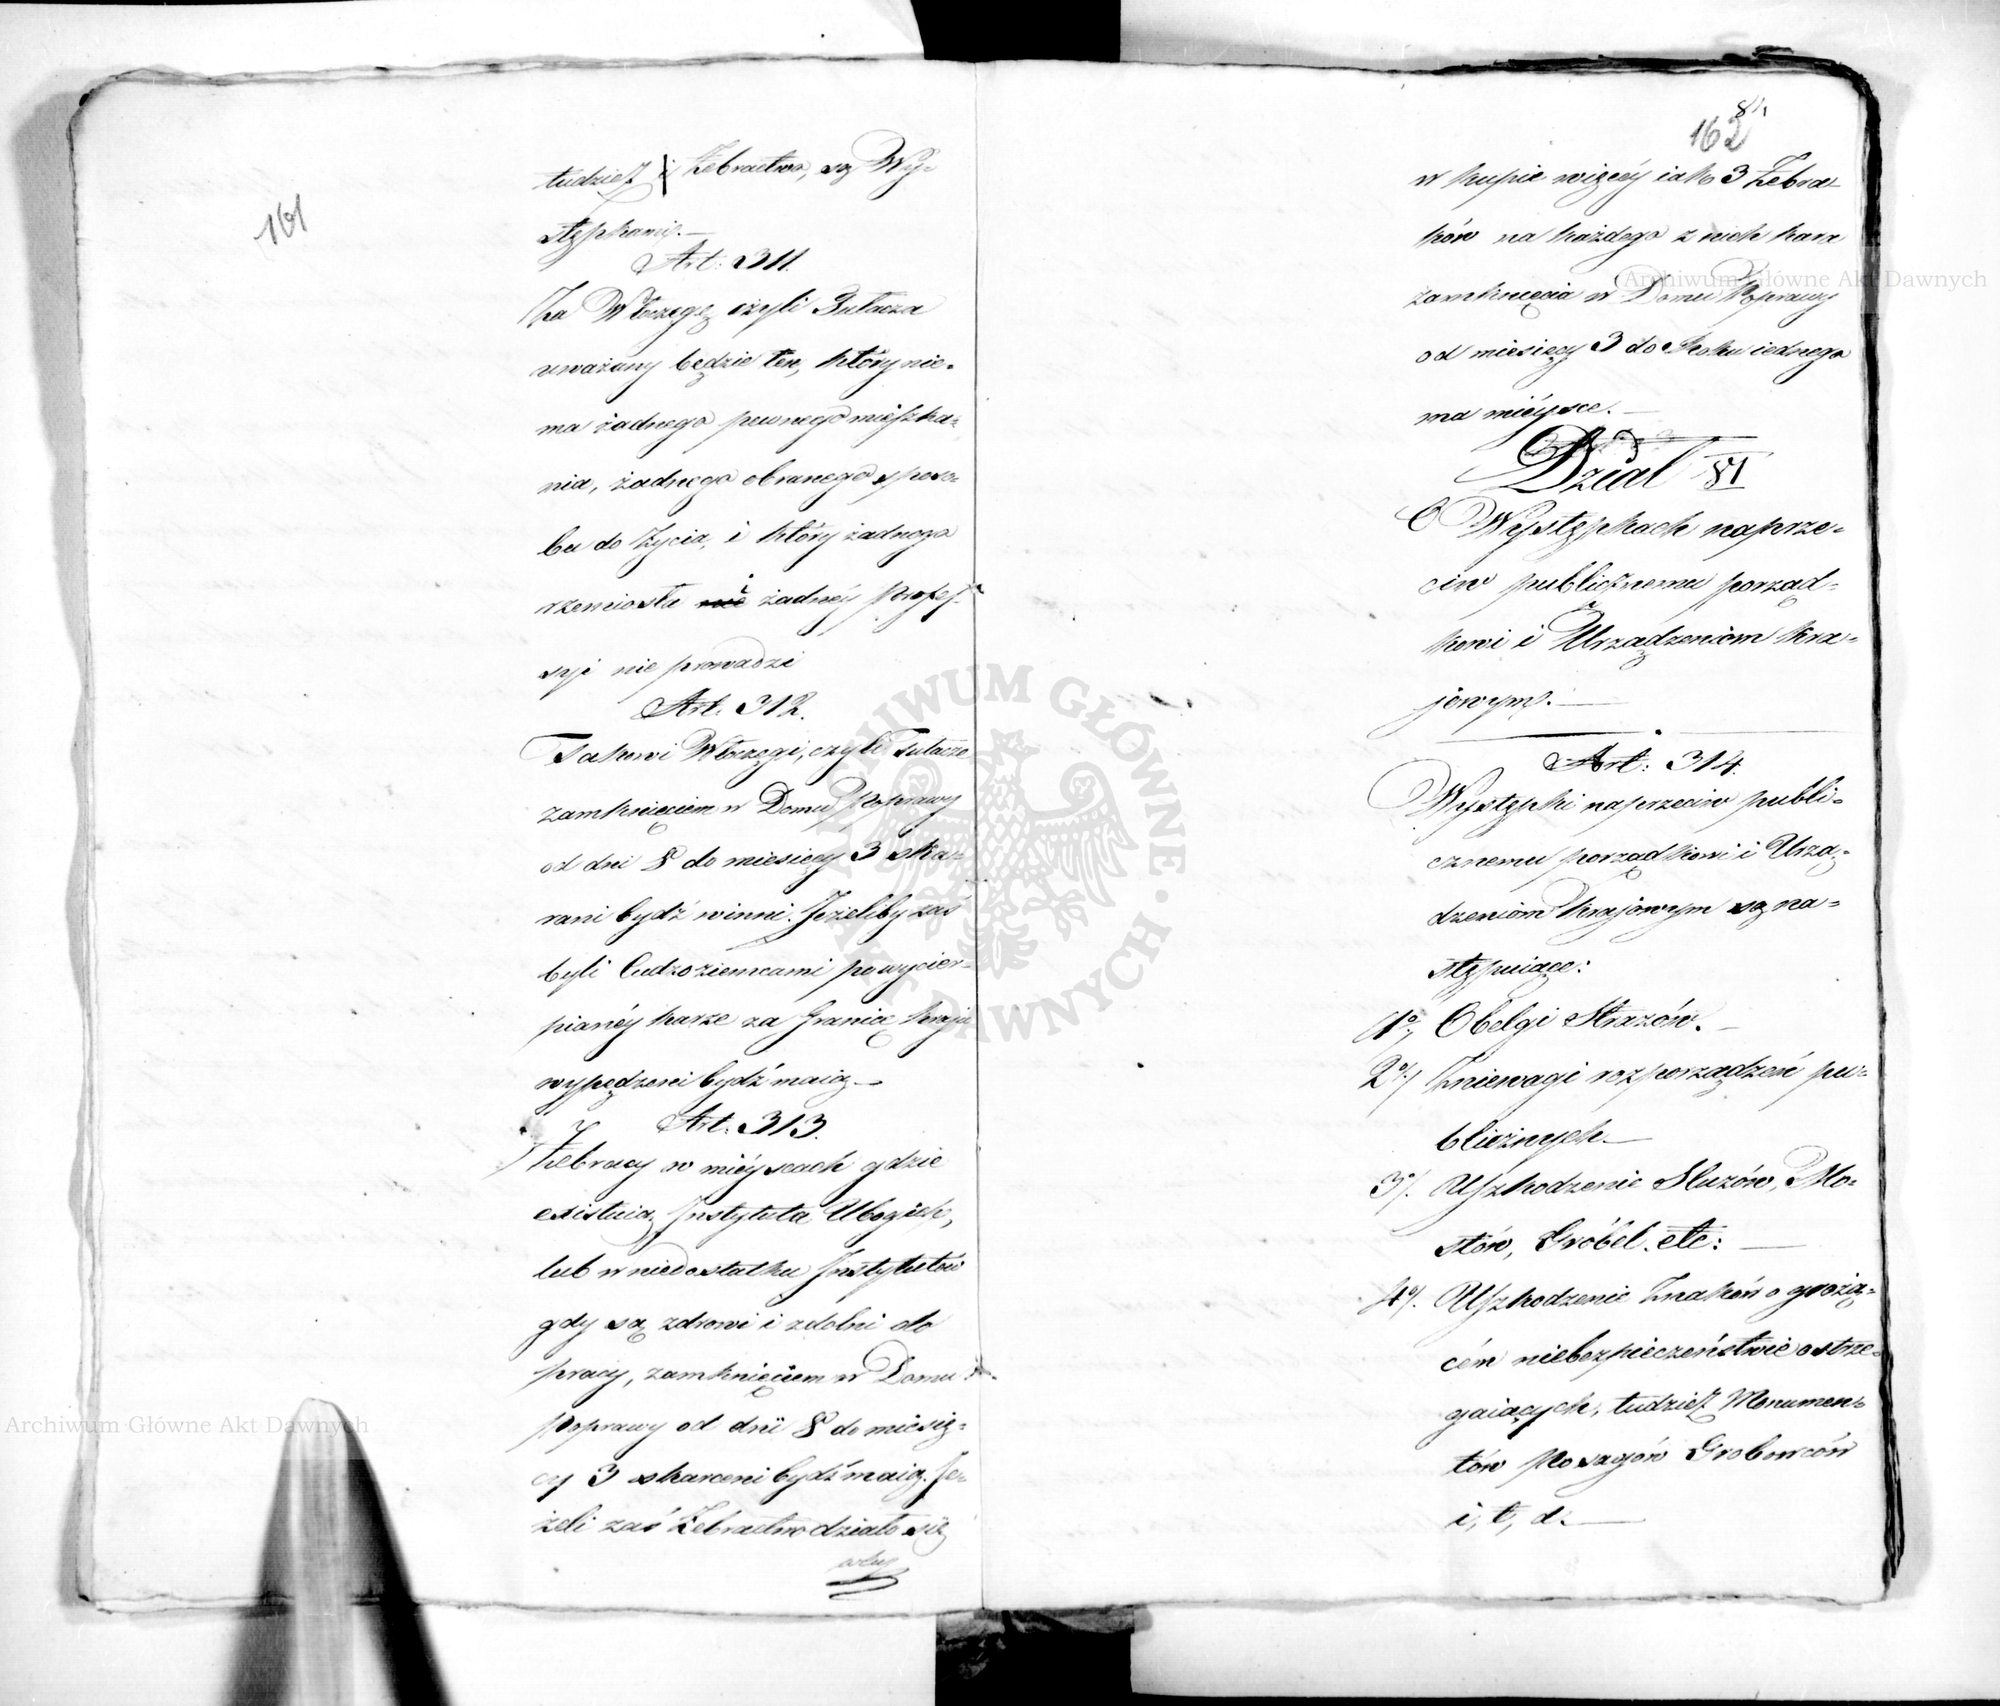 161
tudzież i Żebractwo, są Wy-
stępkami.—
Art: 311.
Za Włóczęgę czyli Tułacza
uważany będzie ten, który nie-
ma żadnego pewnego mieszka-
nia, żadnego obranego sposo-
bu do Życia, i który żadnego
rzemiosła i żadnéy Profes-
syi nie prowadzi
Art. 312.
Takowi Włóczęgi, czyli Tułacze
zamknięciem w Domu Poprawy
od dni 8 do miesięcy 3 ska-
rani bydź winni. Jeżeliby zaś
byli Cudzoziemcami po wycier-
pianéy karze za Granicę Kraju
wypędzeni bydź maią—
Art: 313.
Żebracy w mieyscach gdzie
existuią Instytuta Ubogich,
lub w niedostatku Instytutów
gdy są zdrowi i zdolni do
pracy, zamknięciem w Domu
Poprawy od dni 8 do miesię-
cy 3 skarceni bydź maią. Je-
żeli zaś Żebractwo działo się
w kup
162
w kupie więcéy iak 3 Żebra-
ków na każdego z nich kara
zamknięcia w Domu Poprawy
od miesięcy 3 do Roku iednego
ma mieysce.—
Dział VI
O Występkach naprze-
ciw publicznemu porząd-
kowi i Urządzeniom Kra-
jowym.—
Art: 314.
Występki naprzeciw publi-
cznemu porządkowi i Urzą-
dzeniom Krajowym są na-
stępuiące:
1o, Obelgi Strazów.—
2o/ Zniewagi rozporządzeń pu-
blicznych—
3o/. Uszkodzenie Sluzów, Mo-
stów, Gróbel. etc:—
4o/. Uszkodzenie Znaków o grożą-
cém niebezpieczeństwie ostrze-
gaiących, tudzież Monumen-
tów Posągów Grobowców
i, t, d.—
Archiwum Główne Akt Dawnych
Archiwum Główne Akt Dawnych
ARCHIWUM GŁÓWNE AKT DAWNYCH